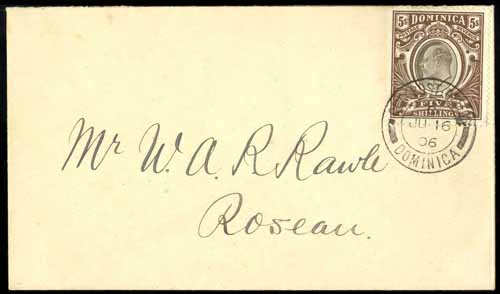 5s DOMINICA 5s
FIVE
SHILLINGS
JU 16
06
DOMINICA
Mr W. A. R. Rawle
Roseau.